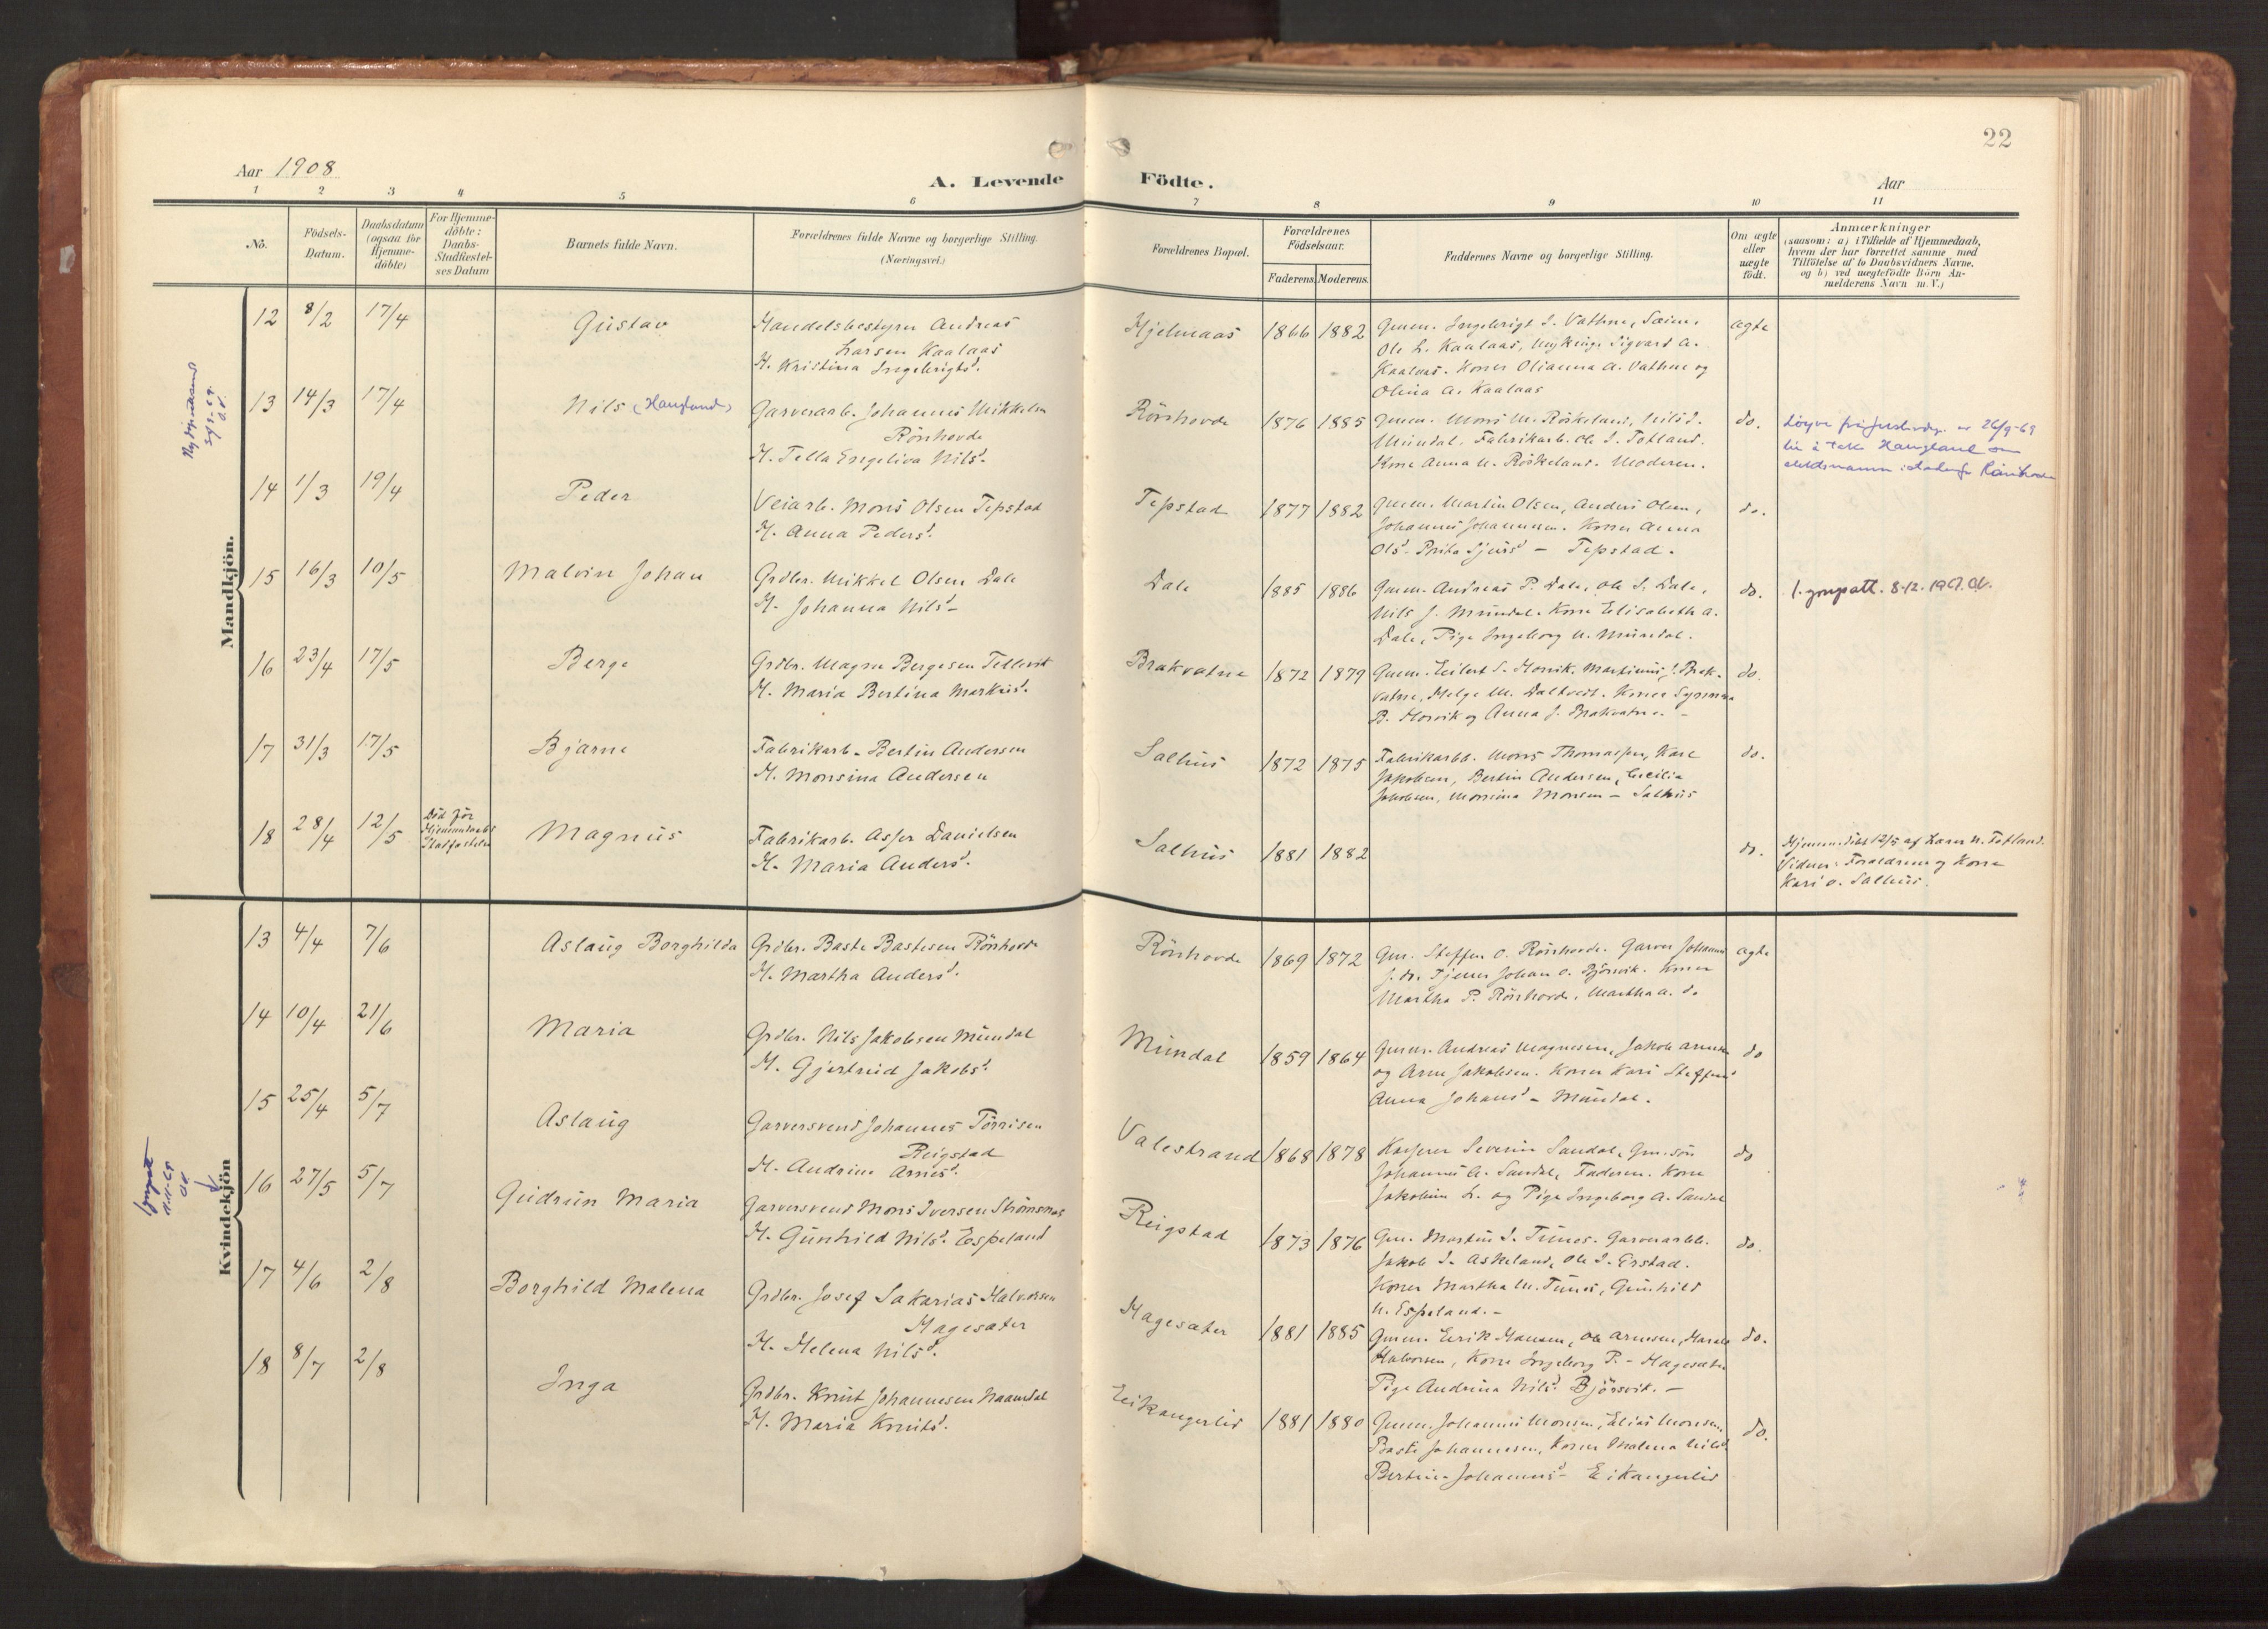 22
Aar 1908
A. Levende Födte.
Aar
1 2 3 4 5 6 7 8 9 10 11
No.
Födsels-
Datum.
Daabsdatum
(ogsaa for
Hjemme-
döbte)
For Hjemme-
döbte:
Daabs-
Stadfæstel-
ses Datum
Barnets fulde Navn.
Forældrenes fulde Navne og borgerlige Stilling.
(Næringsvei.)
Forældrenes Bopæl.
Forældrenes
Födselsaar.
Faderens. Moderens.
Faddernes Navne og borgerlige Stilling.
Om ægte
eller
uægte
födt.
Anmærkninger
(saasom: a) i Tilfælde af Hjemmedaab,
hvem der har forrettet samme med
Tilföielse af to Daabsvidners Navne,
og b) ved uægtefödte Börn An-
melderens Navn m. V.)
Mandkjön.
12 8/2 17/4
Gustav
Handelsbestyrer Andreas
Larsen Kaalaas
H. Kristina Ingebrigtsd.
Hjelmaas
1866 1882
Gmm. Ingebrigt I. Vathne, Saim,
Ole L. Kaalaas, Ungkarl Sigvard A.
Kaalaas. Koner Olianna A. Vathne og
Olina A. Kaalaas
ægte
13 14/3 17/4
Nils (Haugland)
Garverarb. Johannes Mikkelsen
Rönhovde
H. Tella Engeliva Nilsd.
Rönhovde
1876 1885
Gmm. Mons M. Röskeland, Nils J.
Mundal. Fabrikarb. Ole I. Totland.
Kone Anna N. Röskeland. Moderen.
do.
26/9-69
å take Haugland
14 1/3 19/4
Peder
Veiarb. Mons Olsen Tepstad
H. Anna Pedersd.
Tepstad
1877 1882
Gmm. Martin Olsen, Anders Olsen,
Johannes Johannesen. Koner Anna
Olsd. Brita Sjursd - Tepstad.
do.
15 16/3 10/5
Malvin Johan
Grdbr. Mikkel Olsen Dale
H. Johanna Nilsd.
Dale
1885 1886
Gmm. Andreas P. Dale, Ole S. Dale,
Nils J. Mundal. Kone Elisabeth A.
Dale, Pige Ingeborg N. Mundal.
do.
16 23/4 17/5
Berge
Grdbr. Magne Bergesen Tellevik
H. Maria Bertina Markusd.
Brakvatne
1872 1879
Gmm. Eilert S. Hosvik. Martinus J. Brak-
vatne, Helge M. Daltveit. Koner Synneva
B. Hosvik og Anna J. Brakvatne. -
do.
17 31/3 17/5
Bjarne
Fabrikarb. Bertin Andersen
H. Monsina Andersen
Salhus
1872 1875
Fabrikarbb. Mons Thomassen, Karl
Jakobsen, Bertin Andersen, Cecilia
Jakobsen, Monsina Monsen - Salhus
do.
18 28/4 12/5
Död för
Hjemmedaabs
Stadfæstelse
Magnus
Fabrikarb. Asser Danielsen
H. Maria Andersd.
Salhus
1881 1882
do.
Hjemmedöbt 12/5 af Lars N. Totland.
Vidner: Forældrene og Kone
Kari O. Salhus.
Kvindekjön
13 4/4 7/6
Aslaug Borghilda
Grdbr. Baste Bastesen Rönhovde
H. Martha Andersd.
Rönhovde
1869 1872
Gm. Steffen O. Rönhovde. Garver Johannes
J. do. Tjener Johan O. Björsvik. Koner
Martha P. Rönhovde, Martha A. do
ægte
14 10/4 21/6
Maria
Grdbr. Nils Jakobsen Mundal
H. Gjertrud Jakobsd.
Mundal
1859 1864
Gmm. Andreas Magnesen, Jakob Arnesen
og Arne Jakobsen. Koner Kari Steffensd
Anna Johansd - Mundal.
do
15 25/4 5/7
Aslaug
Garversvend Johannes Torrisen
Reigstad
H. Andrine Arnesd.
Valestrand
1868 1878
Kasserer Severin Sandal, Gm. sön
Johannes A. Sandal, Faderen. Kone
Jakobine L. og Pige Ingeborg A. Sandal
do
16 27/5 5/7
Gudrun Maria
Garversvend Mons Iversen Strömsnes
H. Gunhild Nilsd. Espeland
Reigstad
1873 1876
Gm. Martin I. Tunes. Garverarbb.
Jakob I. Askeland, Ole I. Erstad.
Koner Martha M. Tunes, Gunhild
N. Espeland. -
do.
17 4/6 2/8
Borghild Malena
Grdbr. Josef Sakarias Halvorsen
Hagesæter
H. Helena Nilsd.
Hagesæter
1881 1885
Gmm. Eirik Hansen, Ole Arnesen, Harald
Halvorsen, Kone Ingeborg P. - Hagesæter
Pige Andrina Nilsd. Björsvik. -
do.
18 8/7 2/8
Inga
Grdbr. Knut Johannesen Naamdal
H. Maria Knutsd.
Eikangerlid
1881 1880
Gmm. Johannes Monsen, Elias Monsen,
Baste Johannesen, Koner Malena Nilsd.
Bertine Johannesd - Eikangerlid
do.